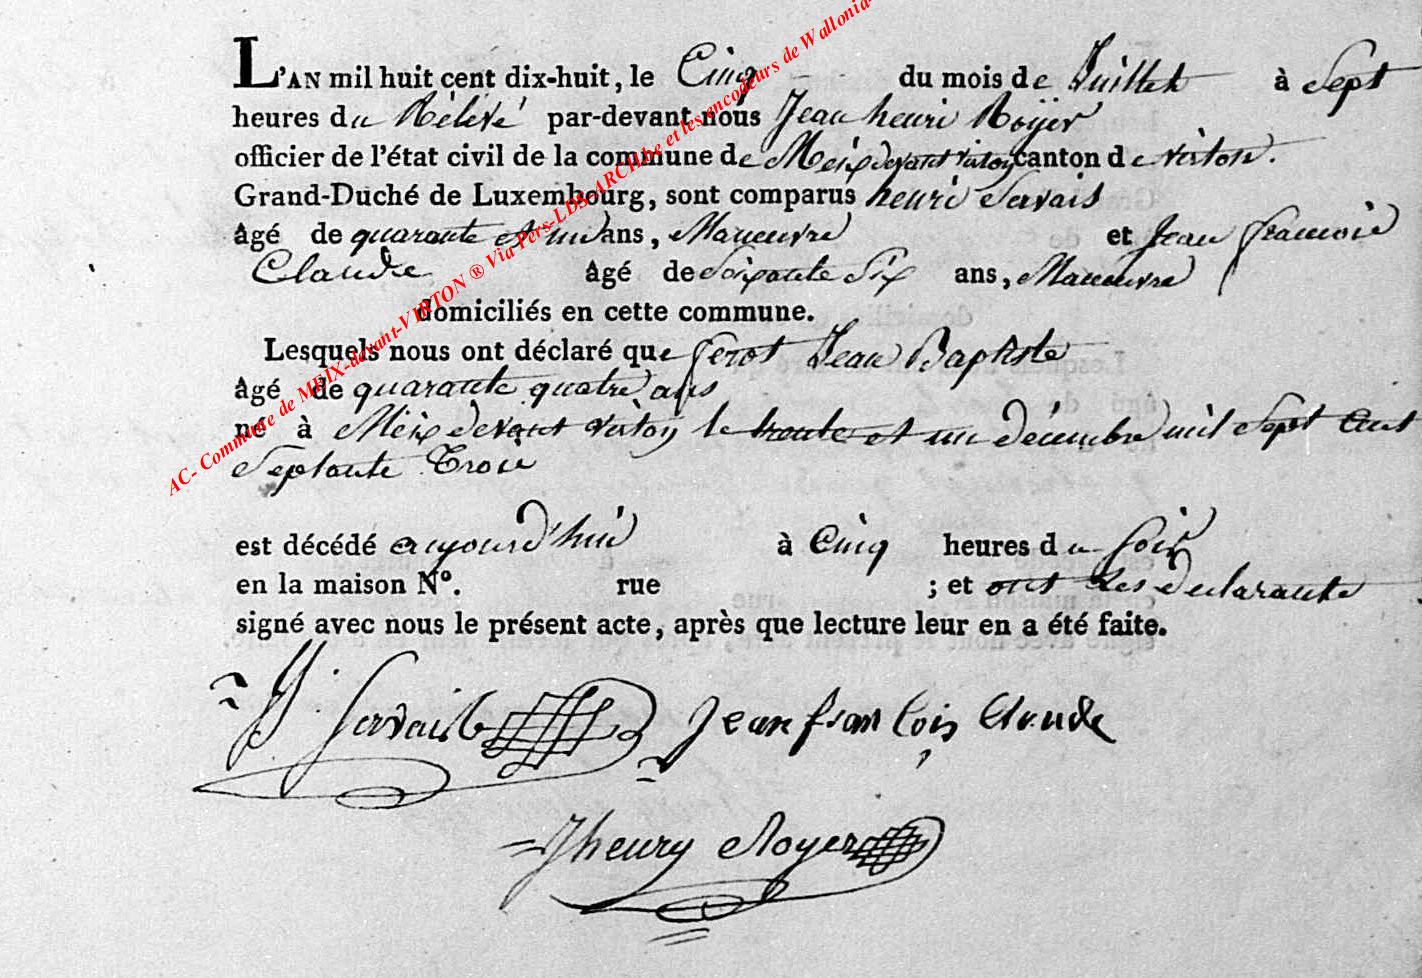 L'AN mil huit cent dix-huit, le Cinq du mois de Juillet à Sept
heures du par-devant nous Jean henri Royer
officier de l'état civil de la commune de Meix devant virton canton de virton.
Grand-Duché de Luxembourg, sont comparus henri Servais
âgé de quarante et un ans, Maneuvre et Jean francois
Claude âgé de Soixante Six ans, Maneuvre
domiciliés en cette commune.
Lesquels nous ont déclaré que Jean Baptiste
âgé de quarante quatre ans
né à Meix devant virton le trente et un décembre mil Sept Cent
Septante Trois
est décédé aujourd'hui à Cinq heures du Soir
en la maison N°. rue ; et ont les declarants
signé avec nous le présent acte, après que lecture leur en a été faite.
H. Servais Jean francois Claude
Jhenry Royer
AC- Commune de MEIX-devant-VIRTON ® Via Pers-LDS-ARCH.be et les encodeurs de Wallonia-